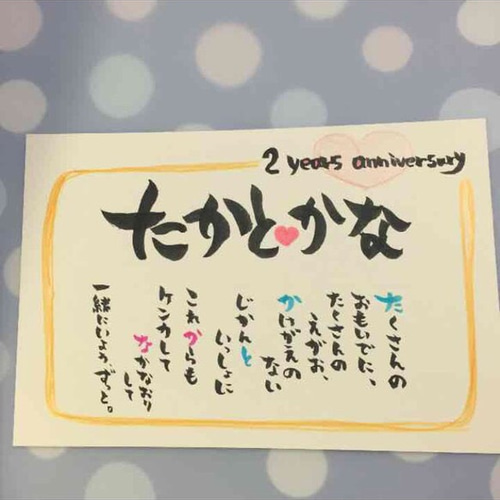 2 years anniversary
たかと♥かな
たくさんの
おもいでに、
たくさんの
えがお、
かけがえの
ない
じかんと
いっしょに
これからも
ケンカして
なかなおり
して
一緒にいよう、ずっと。